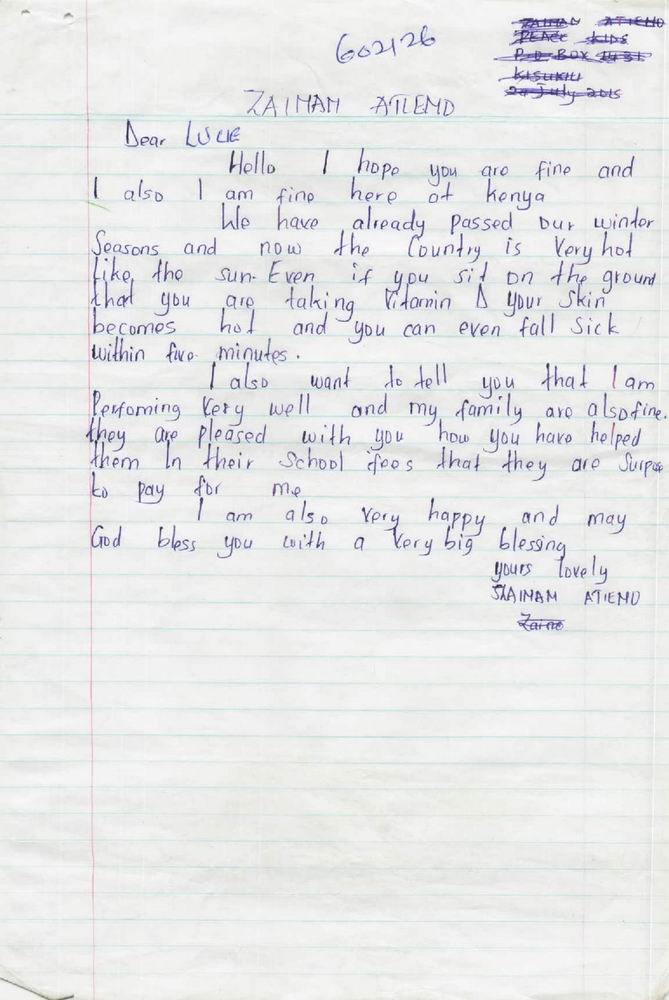 602126
ZAINAH ATIENO
PEACE KIDS
P.O BOX 1431
KISUMU
20 July 2015
ZAINAH ATIENO
Dear LUCIE
Hello I hope you are fine and
I also I am fine here at kenya
We have already passed our winter
Seasons and now the Country is Very hot
like the sun. Even if you sit on the ground
that you are taking Vitamin D your Skin
becomes hot and you can even fall Sick
within five minutes.
I also want to tell you that I am
Perfoming Very well and my family are also fine.
they are pleased with you how you have helped
them In their School fees that they are
to pay for me
I am also very happy and may
God bless you with a Very big blessing
yours lovely
ZAINAH ATIENO